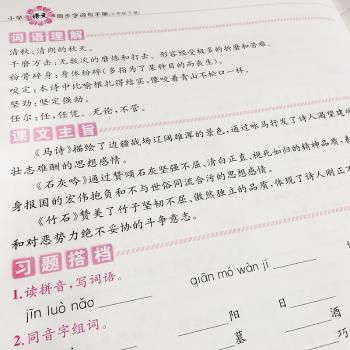 小学语文同步字词句手册
词语理解
清秋：清朗的秋天。
千磨万击：无数次的磨炼和打击。形容经受极多的磨难和
粉骨碎身：身体粉碎(多指为了某种目的而丧生)。
咬定：本诗中比喻根扎得结实，像咬着青山不松口一样。
坚劲：坚定强劲。
任尔：任，任凭，无论，不管。
课文主旨
《马诗》描绘了边疆战场辽阔雄浑的景色，通过咏马抒发了诗人渴望建功
壮志难酬的思想感情。
《石灰吟》通过赞颂石灰坚强不屈、清白正直、视死如归的精神品质，表
身报国的宏伟抱负和不与世俗同流合污的思想感情。
《竹石》赞美了竹子坚韧不屈、傲然独立的品质，体现了诗人刚正不
和对恶势力绝不妥协的斗争意志。
习题搭档
1.读拼音，写词语。
jīn luò nǎo
qiān mó wàn jī
2.同音字组词。
阳 日 酒
墓 巧